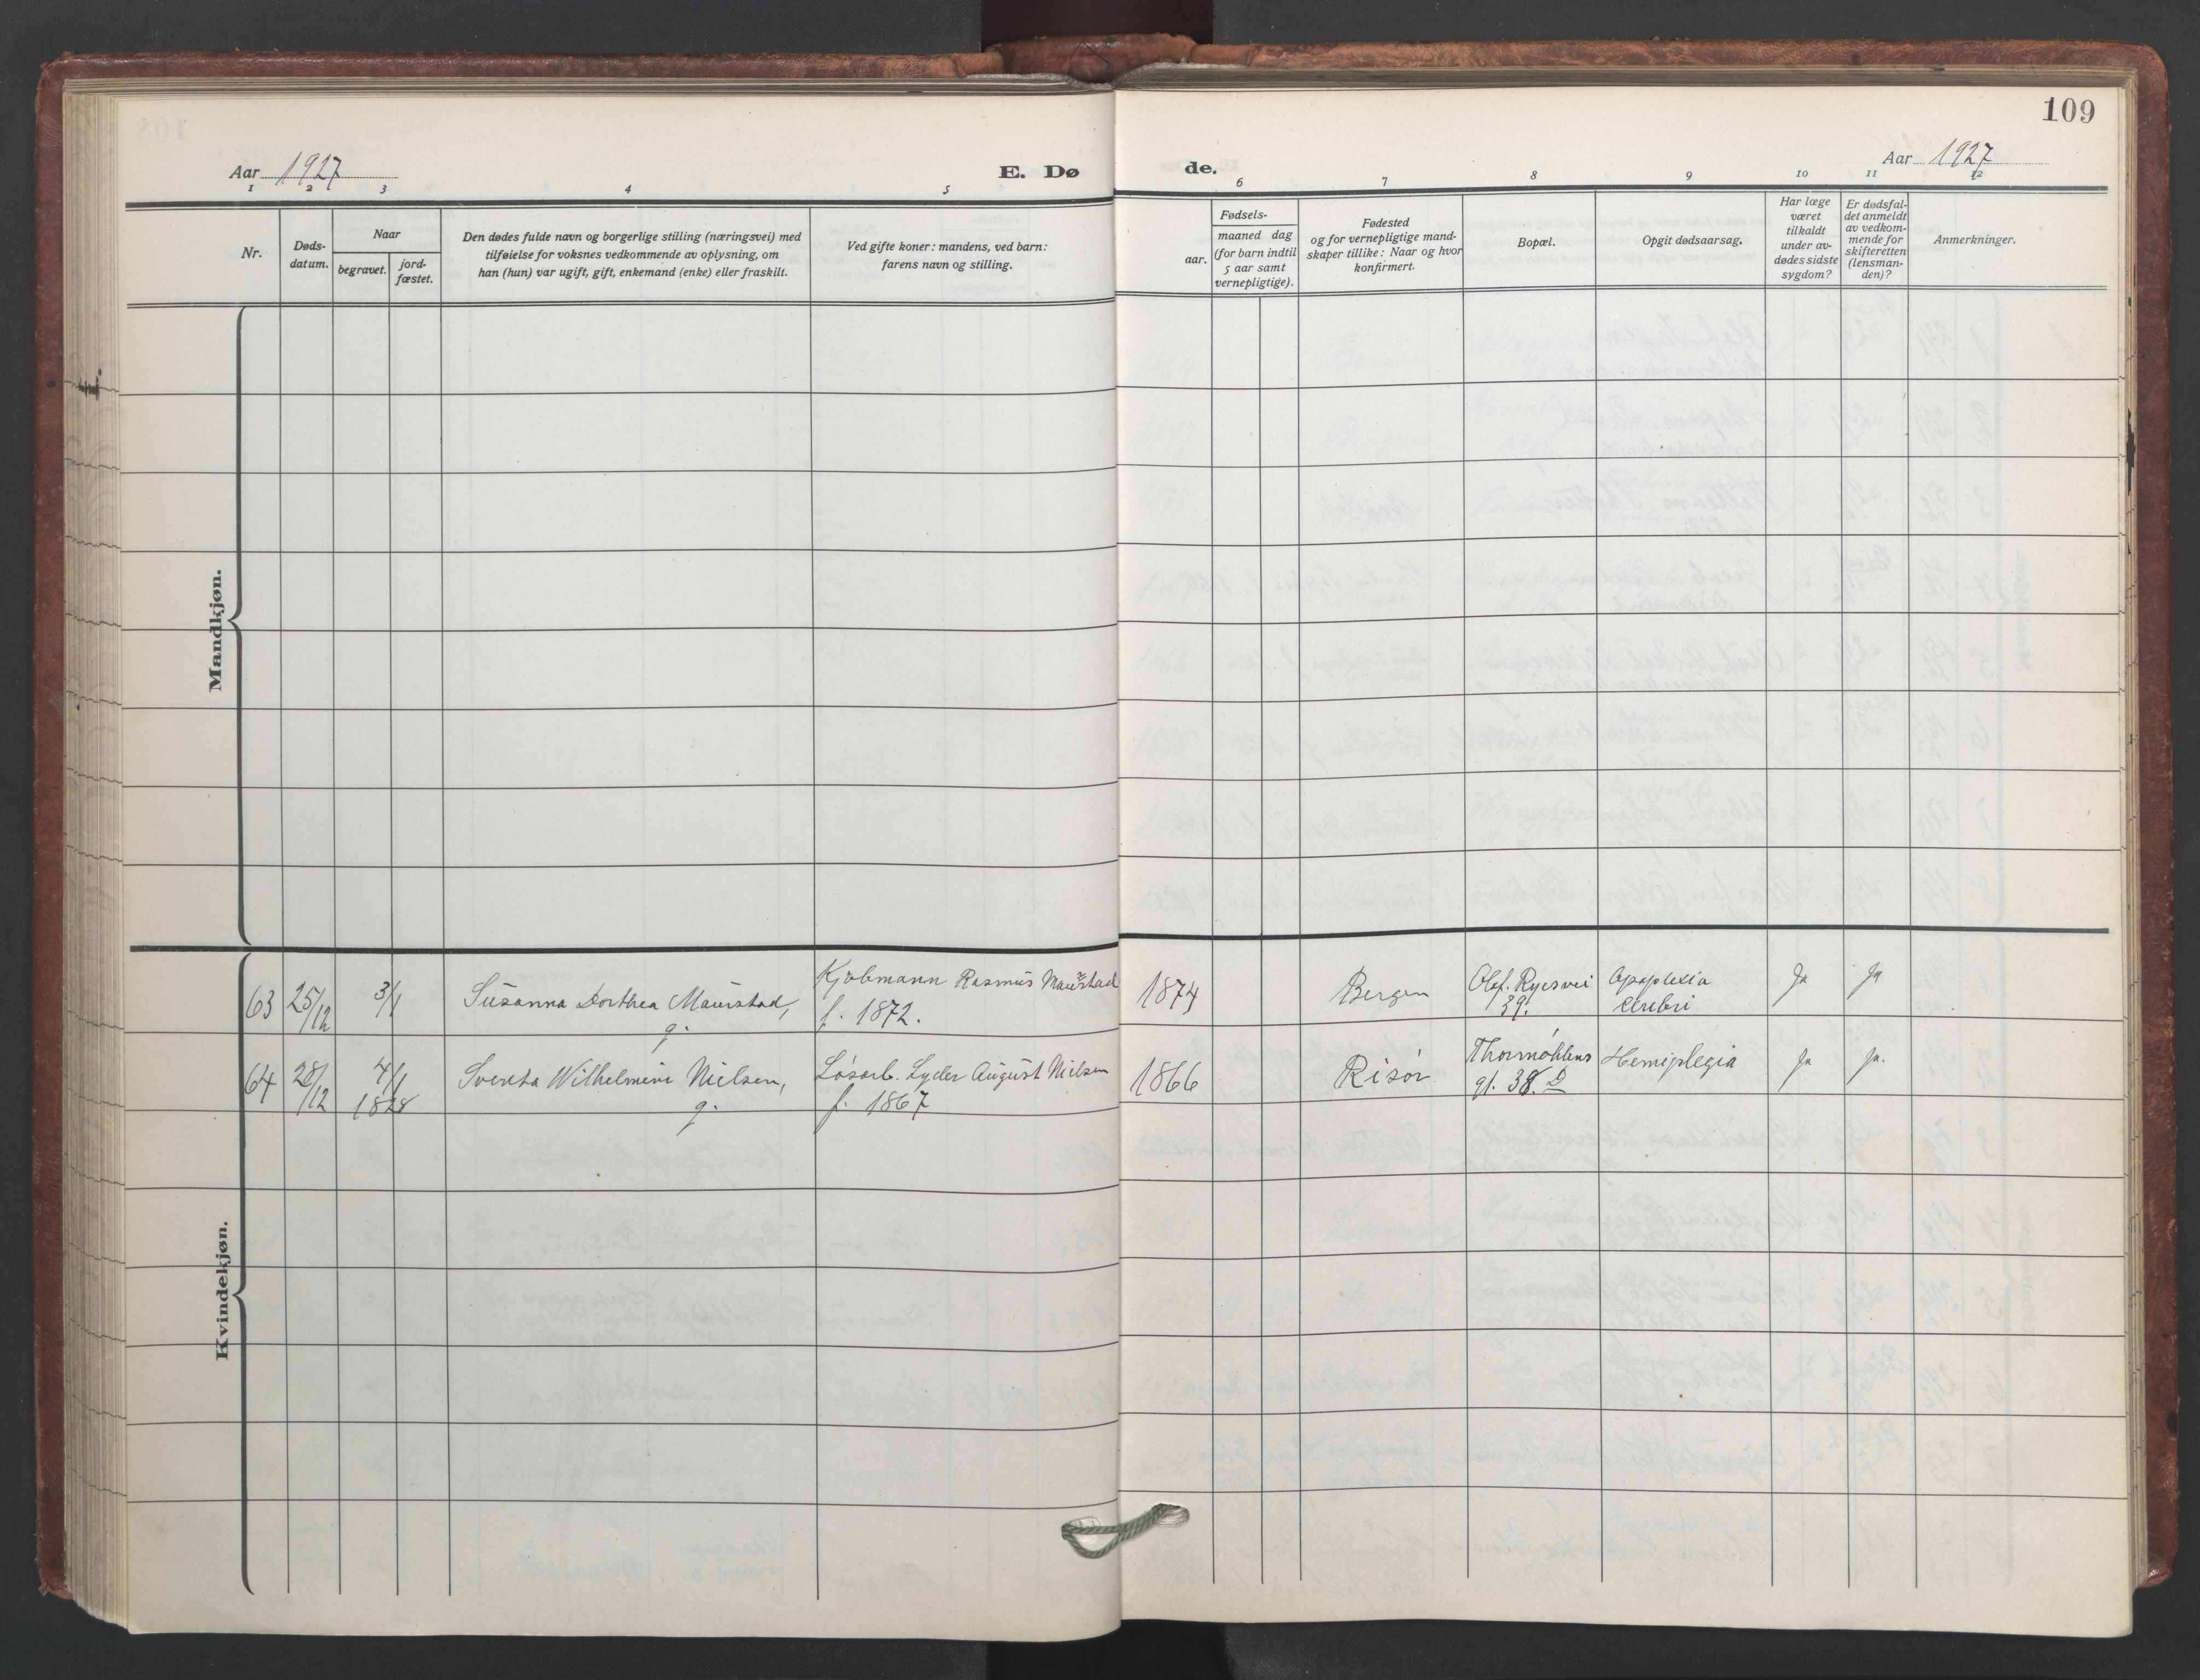 109
Aar 1927
E. Dø
de.
Aar 1927
1 2 3 4 5 6 7 8 9 10 11 12
Nr.
Døds-
datum.
Naar
begravet.
jord-
fæstet.
Den dødes fulde navn og borgerlige stilling (næringsvei) med
tilføielse for voksnes vedkommende av oplysning, om
han (hun) var ugift, gift, enkemand (enke) eller fraskilt.
Ved gifte koner: mandens, ved barn:
farens navn og stilling.
Fødsels-
aar.
maaned dag
(for barn indtil
5 aar samt
vernepligtige).
Fødested
og for vernepligtige mand-
skaper tillike: Naar og hvor
konfirmert.
Bopæl.
Opgit dødsaarsag.
Har læge
været
tilkaldt
under av-
dødes sidste
sygdom?
Er dødsfal-
det anmeldt
av vedkom-
mende for
skifteretten
(lensman-
den)?
Anmerkninger.
Mandkjøn.
Kvindekjøn.
63 25/12 3/1 Susanna Dorthea Maurstad, Kjøbmann Rasmus Maurstad 1874 Bergen Olaf. Ryesvei Apoplexia Ja Ja
g. f. 1872. 39. Cerebri
64 28/12 4/1 Sverta Wilhelmine Nielsen, Løsarb. Lyder August Nielsen 1866 Risør Thormøhlens Hemiplegia Ja Ja.
1828 g. f. 1867 gt. 38. D